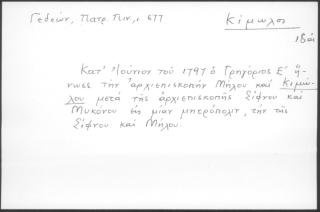 Γεδεών, Πατρ. Πιν., σ. 677
Κίμωλος
Κατ' Ἰούνιον τοῦ 1797 ὁ Γρηγόριος Ε' ἥ-
νωσε τὴν ἀρχιεπισκοπὴν Μήλου καὶ Κιμώ-
λου μετὰ τῆς ἀρχιεπισκοπῆς Σίφνου καὶ
Μυκόνου εἰς μίαν μητρόπολιν, τὴν τῆς
Σίφνου καὶ Μήλου.